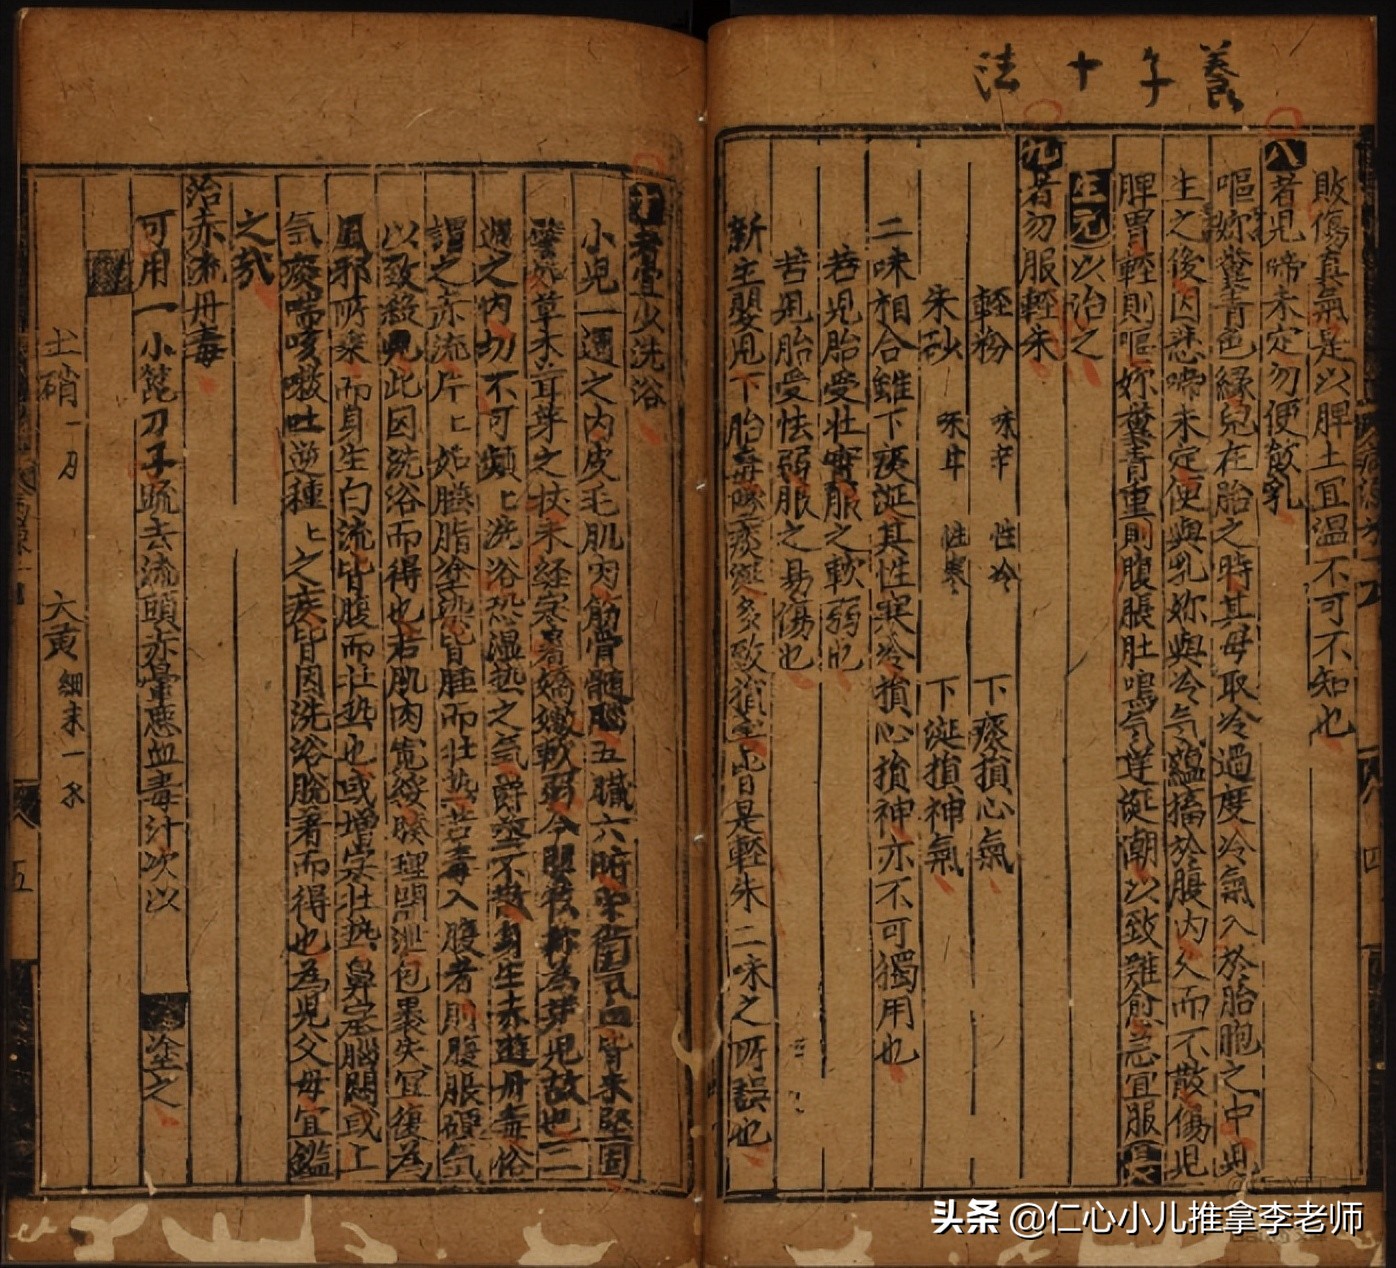 養子十法
敗傷真氣是以脾土宜溫不可不知也
八者児啼未定勿便飲乳
嘔妳糞青色緣兒在胎之時其母取冷過度冷氣入於胎胞之中児
生之後因悲啼未定便與乳妳與冷气蘊搐於腹內久而不散傷児
脾胃輕則嘔妳糞青重則腹脹肚鳴气逆涎潮以致難愈急宜服
生元以治之
九者勿服輕朱
輕粉 味辛 性冷 下痰損心氣
朱砂 味甘 性寒 下涎損神氣
二味相合雖下痰涎其性寒冷損心損神亦不可獨用也
若児胎受壯實服之軟弱也
若児胎受怯弱服之易傷也
新生嬰児下胎毒 痰涎多致損 皆是輕朱二味之所誤也
十者宜少洗浴
小児一週之內皮毛肌肉筋骨髓腦五臟六腑 氣血皆未堅固
譬如草木茸芽之狀未経寒暑嬌嫩軟弱今 為芽児故也一
週之內切不可頻ヒ洗浴恐湿热之气 不散身生赤遊丹毒俗
謂之赤流片ヒ如臙脂塗染皆腫而壯热若毒入腹者則腹脹硬気
以致殺児此因洗浴而得也若肌肉寛緩腠理開泄包裹失宜復為
風邪所乘而身生白流皆腹而壮热也或增寒壮热鼻塞腦悶或上
氣痰喘咳嗽吐逆種ヒ之疾皆因洗浴脫著而得也為児父母宜鑑
之哉
治赤流丹毒
可用一小篦刀子疏去流頭赤暈惡血毒汁次以 塗之
土硝一分 大黄細末一分
頭条 @仁心小儿推拿李老师